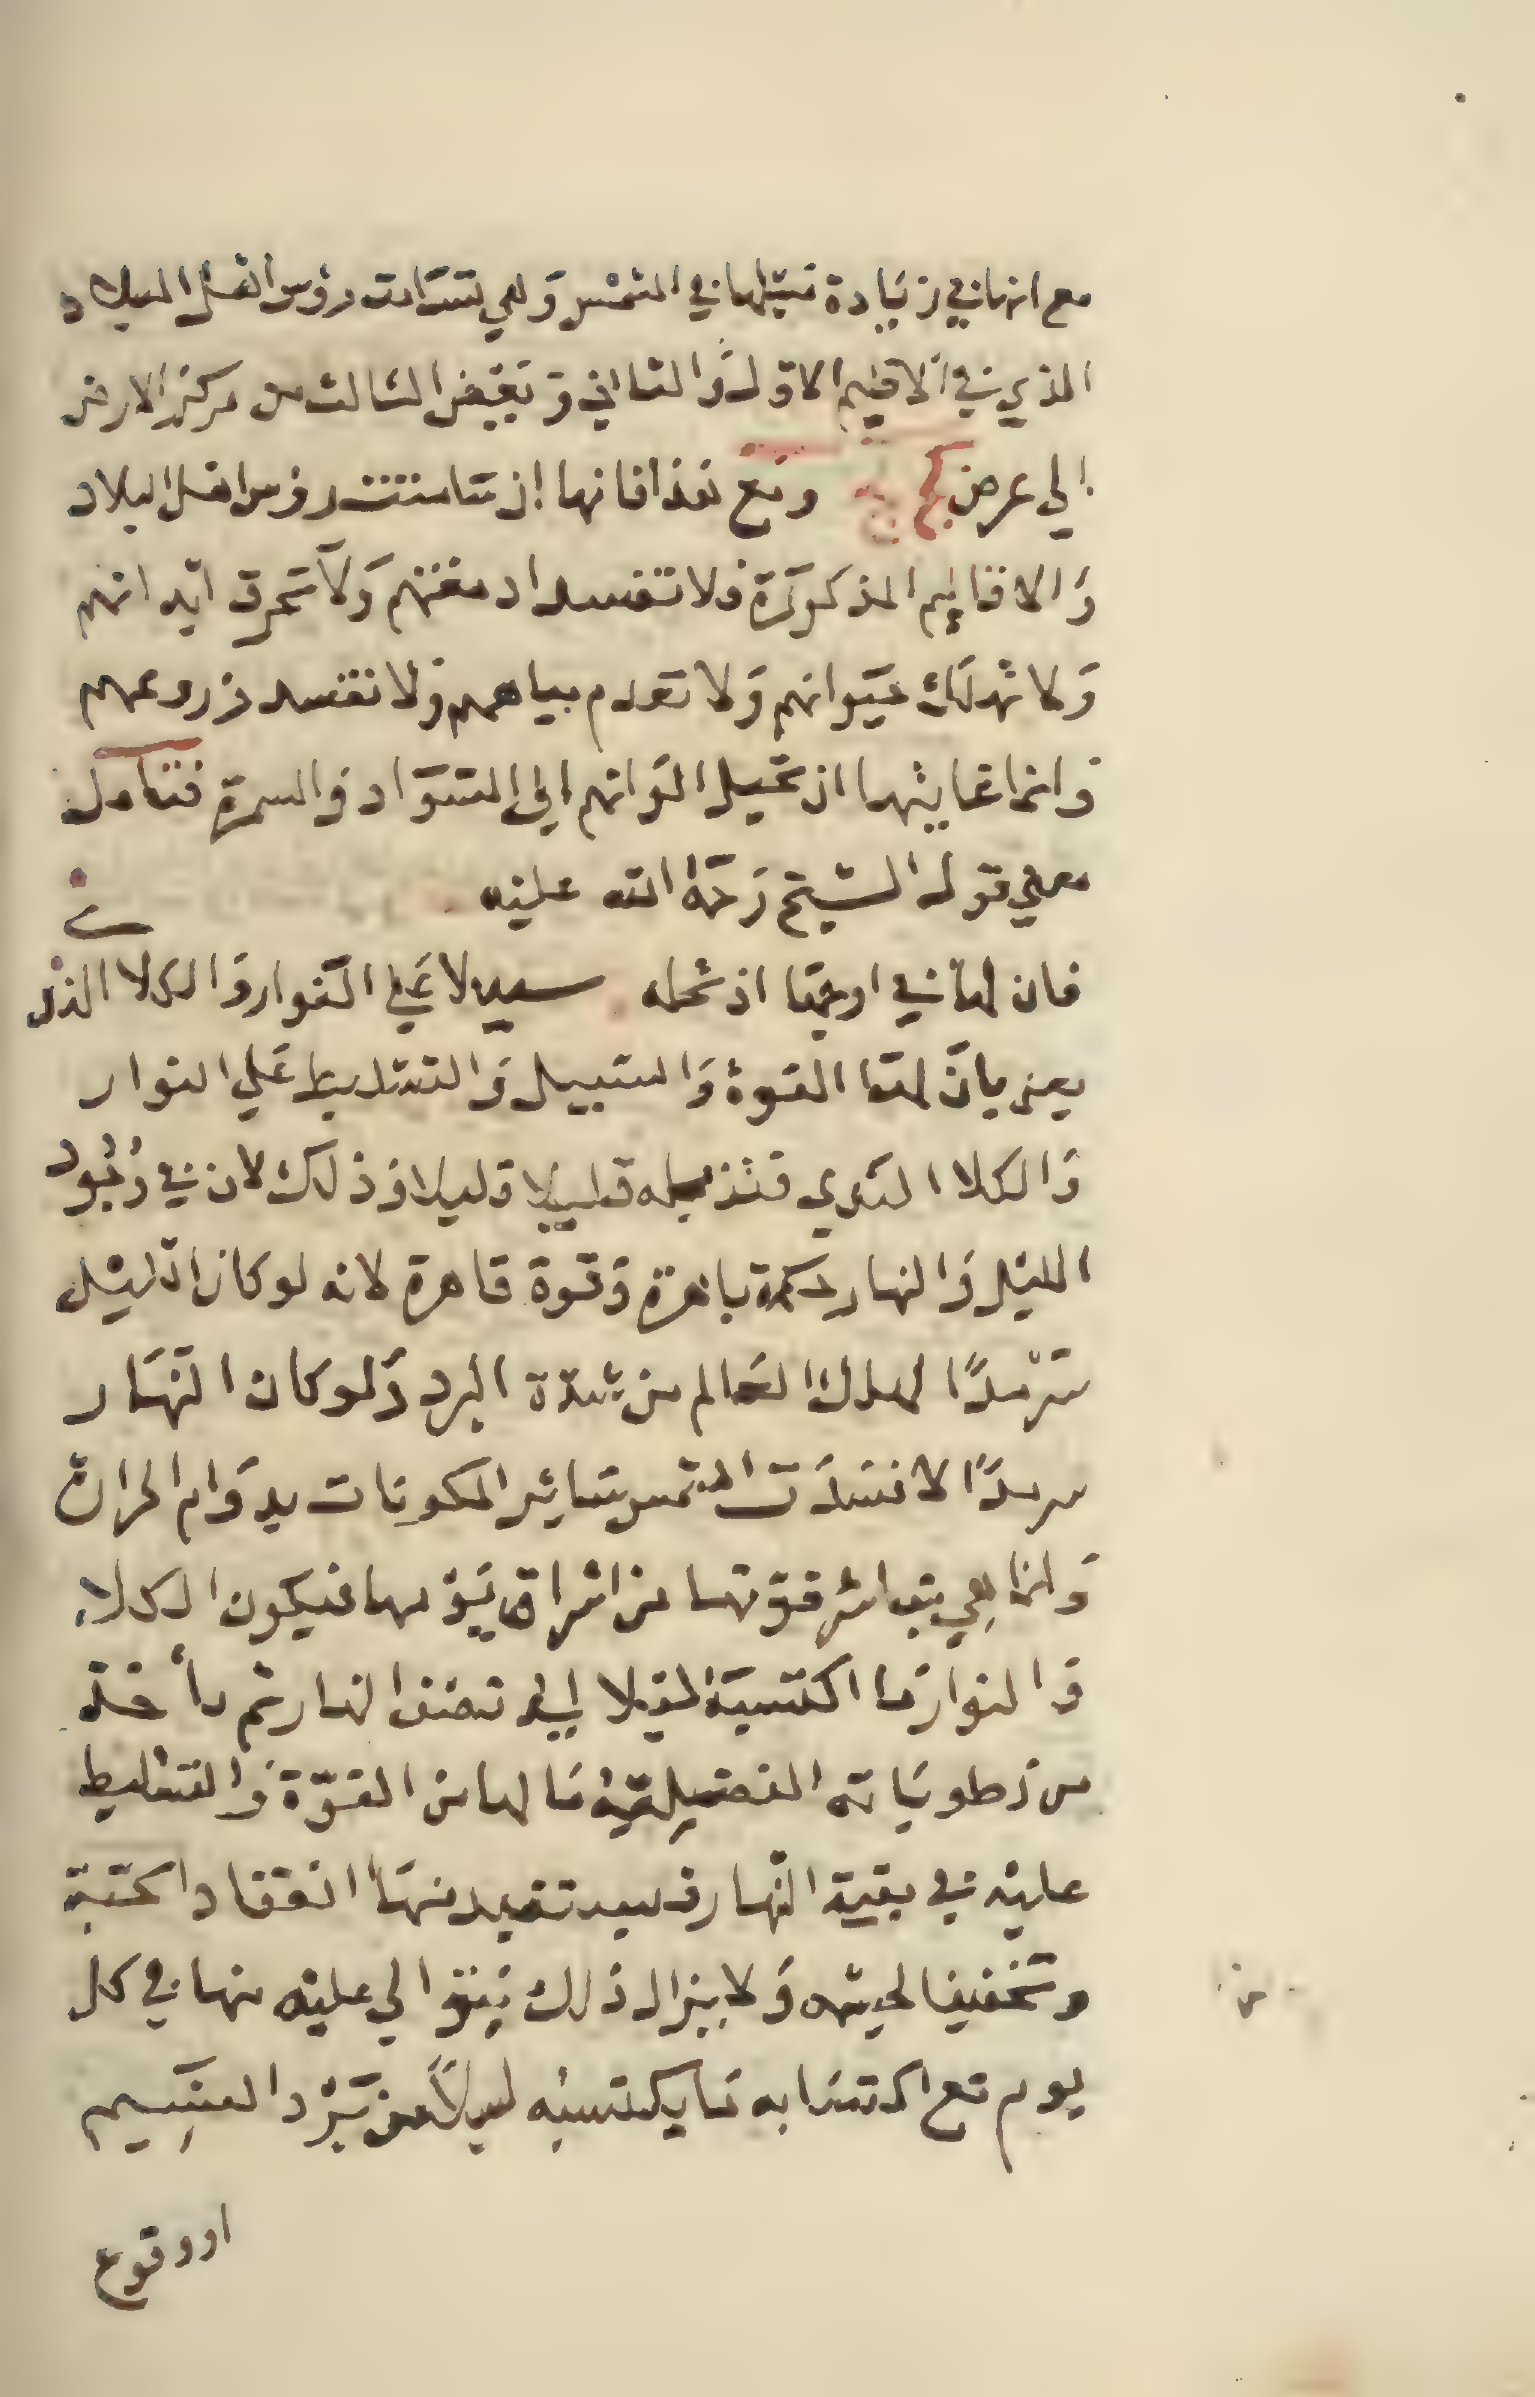 مع انها في زيادة نسبتها في الشمس وهي تسامت رؤس اهل البلاد
الذي في الاقليم الاول والثاني وبعض الثالث من مركز الارض
الي عرض ومع هذا فانها اذ تسامتت رؤس اهل البلاد
والاقاليم المذكورة فلا تفسد ادمغتهم ولا تحرق ابدانهم
ولا تهلك حيوانهم ولا تعدم مياههم ولا تفسد زروعهم
وانما غايتها ان تحيل الوانهم الي السواد والسمرة فتامل
معني قول الشيخ رحمة الله عليه
فان لها في اوجها اذ تحله سبيلا علي النوار والكلا الندي
يعني بان لها القوة والسبيل والتسليط علي النوار
والكلا الندي فتذبله قليلا قليلا وذلك لان في وجود
الليل والنهار حكمة باهرة وقوة قاهرة لانه لو كان الليل
سرمدًا لهلك العالم من شدة البرد ولو كان النهار
سرمدًا لافسدت الشمس سائر المكونات بدوام الحرارة
وانما هي تباشر قوتها من اشراق يومها فيكون الكلا
والنوار بما اكتسبه ليلا الي نصف النهار ثم تأخذ
من رطوباته الفضيلية ما لها من القوة والتسليط
عليه في بقية النهار فيستفيد منها انعقادا لحبه
وتخفيفا لجسمه ولا يزال ذلك يتوالي عليه منها في كل
يوم مع اكتسابه ما يكتسبه ليلاً من برد النسيم
او وقوع